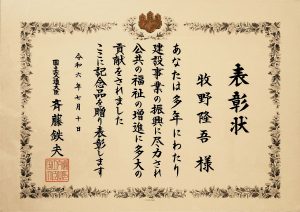 表彰状
牧野隆吾 様
あなたは多年にわたり
建設事業の振興に尽力され
公共の福祉の増進に多大の
貢献をされました
ここに記念品を贈り表彰します
令和六年七月十日
国土交通大臣 斉藤鉄夫